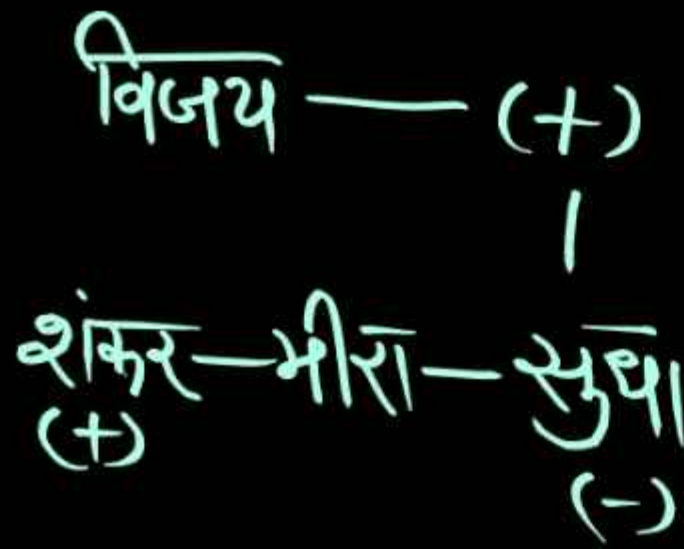 विजय — (+)
|
शंकर — मीरा — सुधा
(+) (-)